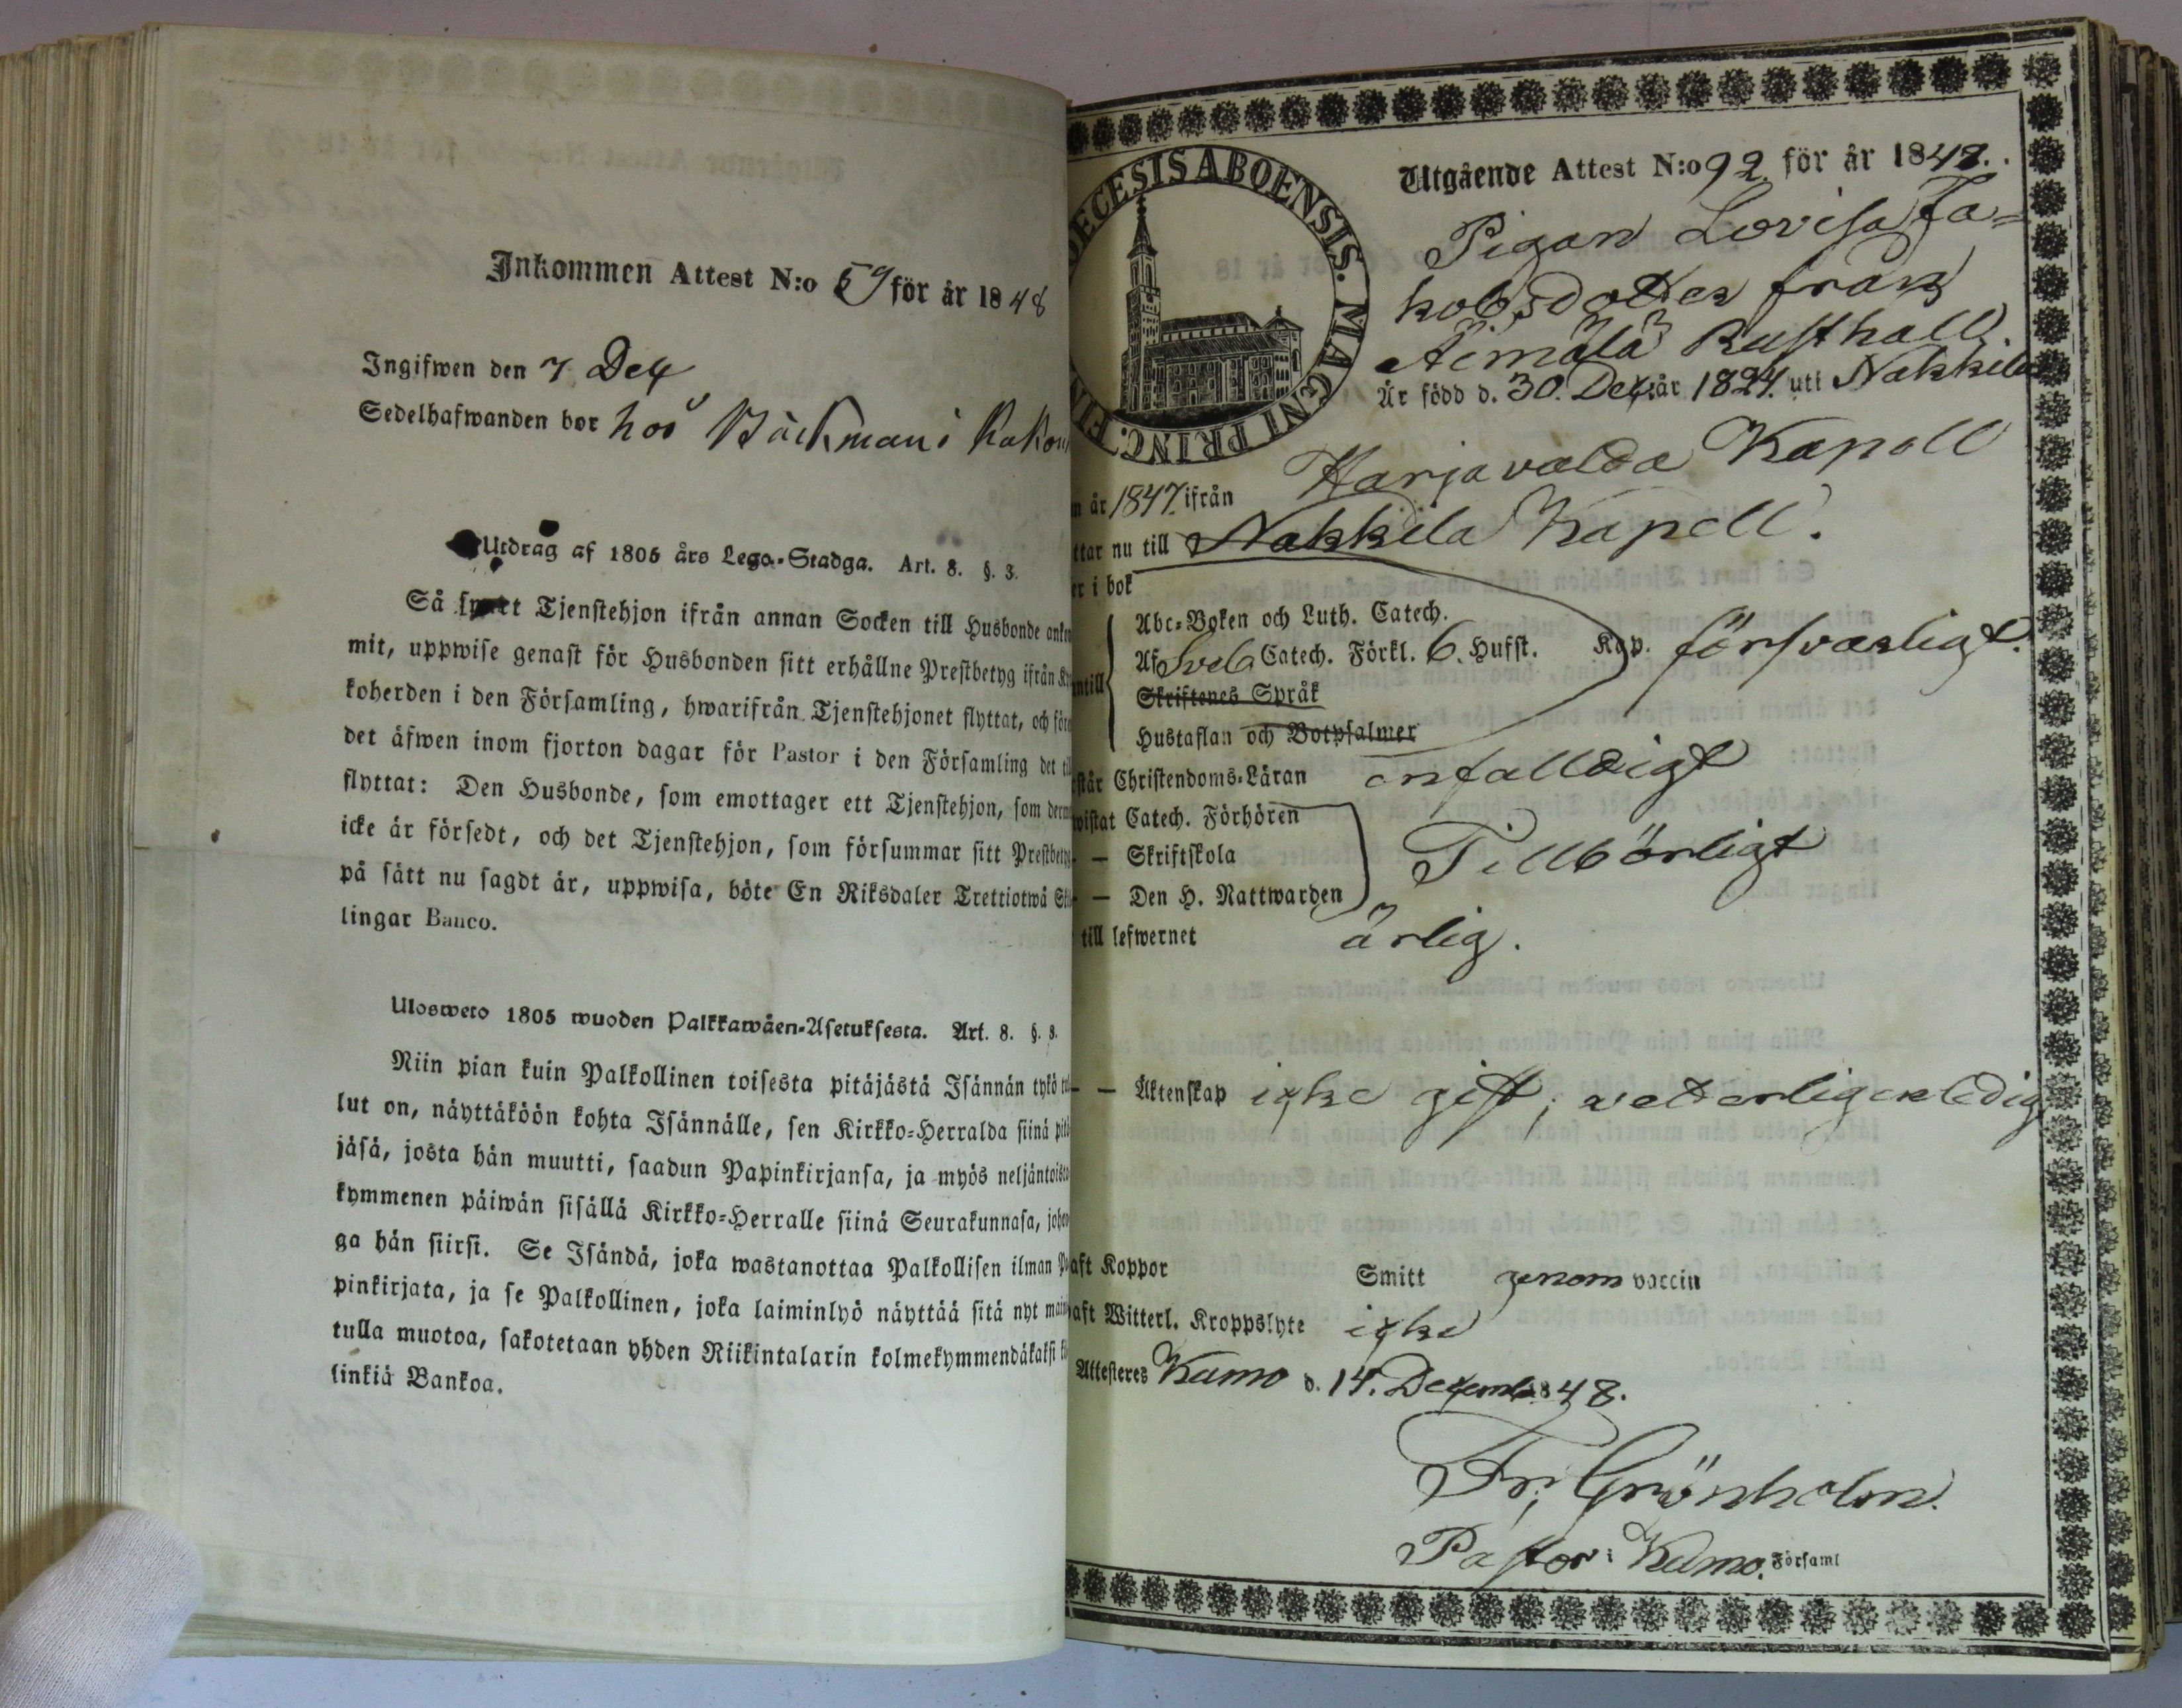 Inkommen Attest N:o 59 för år 1848
Ingifwen den 7 Dec
Sedelhafwanden bor hos Bäckman i
Utdrag af 1805 års Lego-Stadga. Art. 8. §. 3.
Så snart Tjenstehjon ifrån annan Socken till Husbonde
mit, uppwise genast för Husbonden sitt erhållne Prestbetyg ifrån
koherden i den Församling, hwarifrån Tjenstehjonet flyttat, och
det äfwen inom fjorton dagar för Pastor i den Församling det
flyttat: Den Husbonde, som emottager ett Tjenstehjon, som
icke är försedt, och det Tjenstehjon, som försummar sitt
på sätt nu sagdt är, uppwisa, böte En Riksdaler Trettiotwå
lingar Banco.
Uloswero 1805 wuoden Palkkawäen-Asetuksesta. Art. 8. §. 3.
Niin pian kuin Palkollinen toisesta pitäjästä Isännän tykö
lut on, näyttäköön kohta Isännälle, sen Kirkko-Herralda siinä
jäsä, josta hän muutti, saadun Papinkirjansa, ja myös
kymmenen päiwän sisällä Kirkko-Herralle siinä Seurakunnasa,
ga hän siirsi. Se Isändä, joka wastanottaa Palkollisen ilman
pinkirjata, ja se Palkollinen, joka laiminlyö näyttää sitä nyt
tulla muotoa, sakotetaan yhden Riikintalarin kolmekymmendäkaksi
linkiä Bankoa.
ECESIS ABOENSIS. MAGNI PRINC. FIN
Utgående Attest N:o 92 för år 1848.
Pigan Lovisa Ja-
kobsdotter från
Äimälä Rusthåll
Är född d. 30. Dec. år 1824. uti Nakkila
år 1847 ifrån Harjavalda Kapell
ttar nu till Nakkila Kapell.
er i bok
Abc-Boken och Luth. Catech.
Af Sveb Catech. Förkl. 6. Hufst. Kap. försvarligt.
ntill
Skriftenes Språk
Hustaflan och Botpsalmer
står Christendoms-Läran enfalldigt
wistat Catech. Förhören
— Skriftskola Tillbörligt
— Den H. Nattwarden
till lefwernet ärlig.
— — Äktenskap icke gift; vetterligen ledig
aft Koppor Smitt genom vaccin
aft Witterl. Kroppslyte icke
Attesteres Kumo d. 14. Decemb. 1848.
Fr. Grönholm.
Pastor i Kumo. Församl